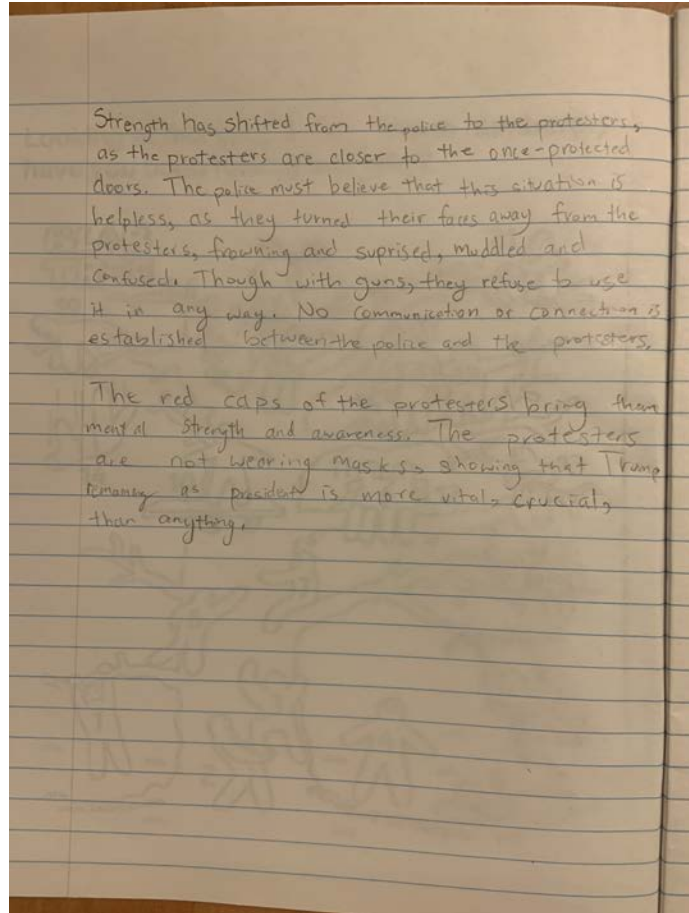 Strength has shifted from the police to the protesters,
as the protesters are closer to the once-protected
doors. The police must believe that this situation is
helpless, as they turned their faces away from the
protesters, frowning and suprised, muddled and
confused. Though with guns, they refuse to use
it in any way. No communication or connection is
established between the police and the protesters.
The red caps of the protesters bring them
mental strength and awareness. The protesters
are not wearing masks, showing that Trump
as president is more vital, crucial,
than anything.